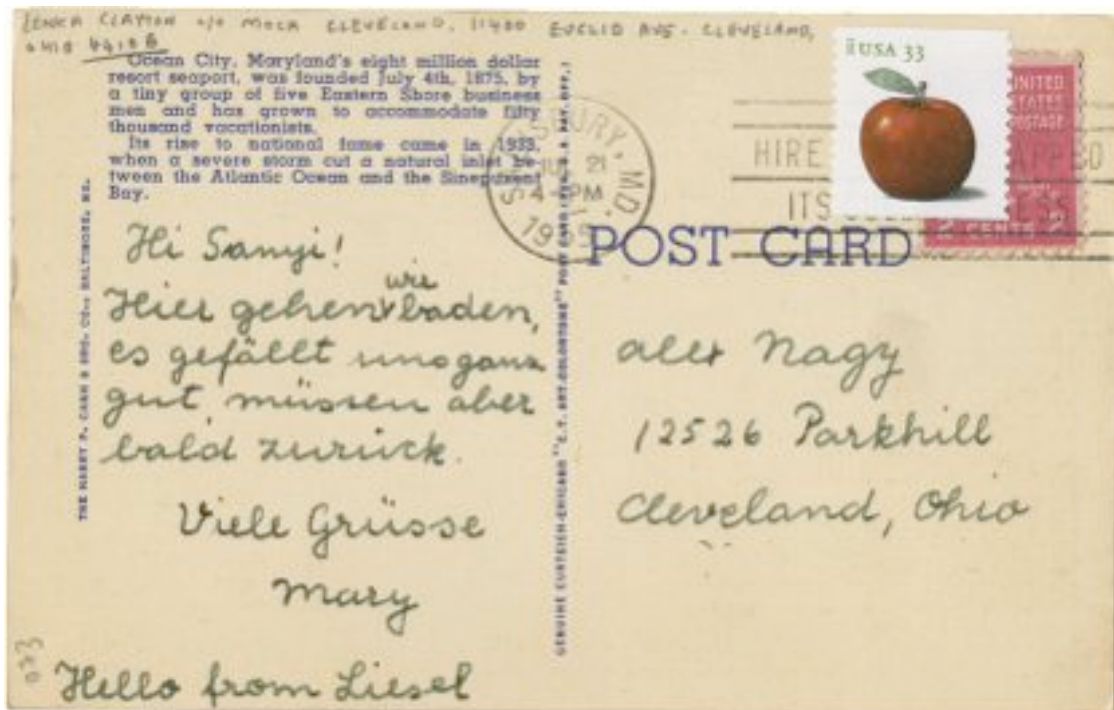 LENKA CLAYTON c/o MOCA CLEVELAND, 11400 EUCLID AVE. CLEVELAND,
OHIO 44106
Ocean City, Maryland's eight million dollar
resort seaport, was founded July 4th, 1875, by
a tiny group of five Eastern Shore business
men and has grown to accommodate fifty
thousand vacationists.
Its rise to national fame came in 1933,
when a severe storm cut a natural inlet be-
tween the Atlantic Ocean and the Sinepuxent
Bay.
THE HARRY P. CANN & BRO. CO., BALTIMORE, MD.
Hi Sanyi!
wir
Hier gehen baden,
es gefällt uns ganz
gut, müssen aber
bald zurück.
Viele Grüsse
Mary
Hello from Liesel
GENUINE CURTEICH-CHICAGO "C. T. ART-COLORTONE" POST CARD (REG. U. S. PAT. OFF.)
SALISBURY, MD.
21
4-PM
HIRE
ITS
USA 33
UNITED
STATES
POSTAGE
2 CENTS 2
POST CARD
alex Nagy
12526 Parkhill
Cleveland, Ohio